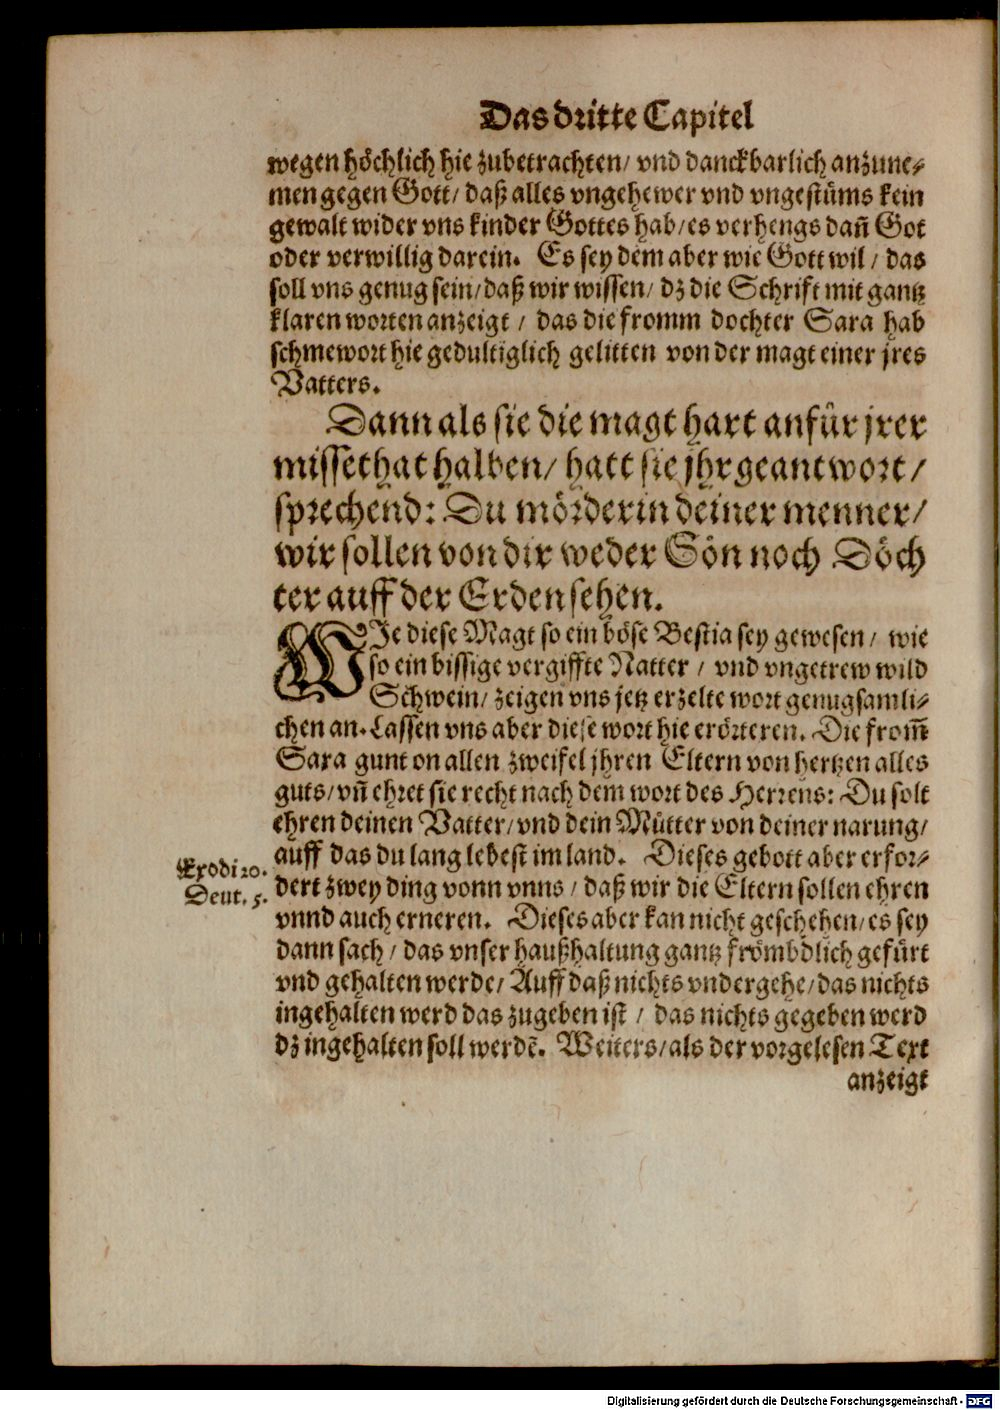 Das dritte Capitel
wegen höchlich hie zubetrachten/ vnd danckbarlich anzune⸗
men gegen Gott/ daß alles vngehewer vnd vngestüms kein
gewalt wider vns kinder Gottes hab/ es verhengs dañ Got
oder verwillig darein. Es sey dem aber wie Gott wil/ das
soll vns genug sein/ daß wir wissen/ dz die Schrift mit gantz
klaren worten anzeigt/ das die fromm dochter Sara hab
schmewort hie gedultiglich gelitten von der magt einer jres
Vatters.
Dann als sie die magt hart anfür jrer
missethat halben/ hatt sie jhr geantwort/
sprechend: Du mörderin deiner menner/
wir sollen von dir weder Sön noch Döch
ter auff der Erden sehen.
WIe diese Magt so ein böse Bestia sey gewesen/ wie
so ein bissige vergiffte Natter/ vnd vngetrew wild
Schwein/ zeigen vns jetz erzelte wort genugsamli⸗
chen an. Lassen vns aber diese wort hie erörteren. Die from̃
Sara gunt on allen zweifel jhren Eltern von hertzen alles
guts/ vñ ehret sie recht nach dem wort des Herrens: Du solt
ehren deinen Vatter/ vnd dein Mütter von deiner narung/
auff das du lang lebest im land. Dieses gebott aber erfor⸗
Exodi 20.
Deut. 5.
dert zwey ding vonn vnns/ daß wir die Eltern sollen ehren
vnnd auch erneren. Dieses aber kan nicht geschehen/ es sey
dann sach/ das vnser haußhaltung gantz frömbdlich gefürt
vnd gehalten werde/ Auff daß nichts vndergehe/ das nichts
ingehalten werd das zugeben ist/ das nichts gegeben werd
dz ingehalten soll werdẽ. Weiters/ als der vorgelesen Text
anzeigt
Digitalisierung gefördert durch die Deutsche Forschungsgemeinschaft - DFG